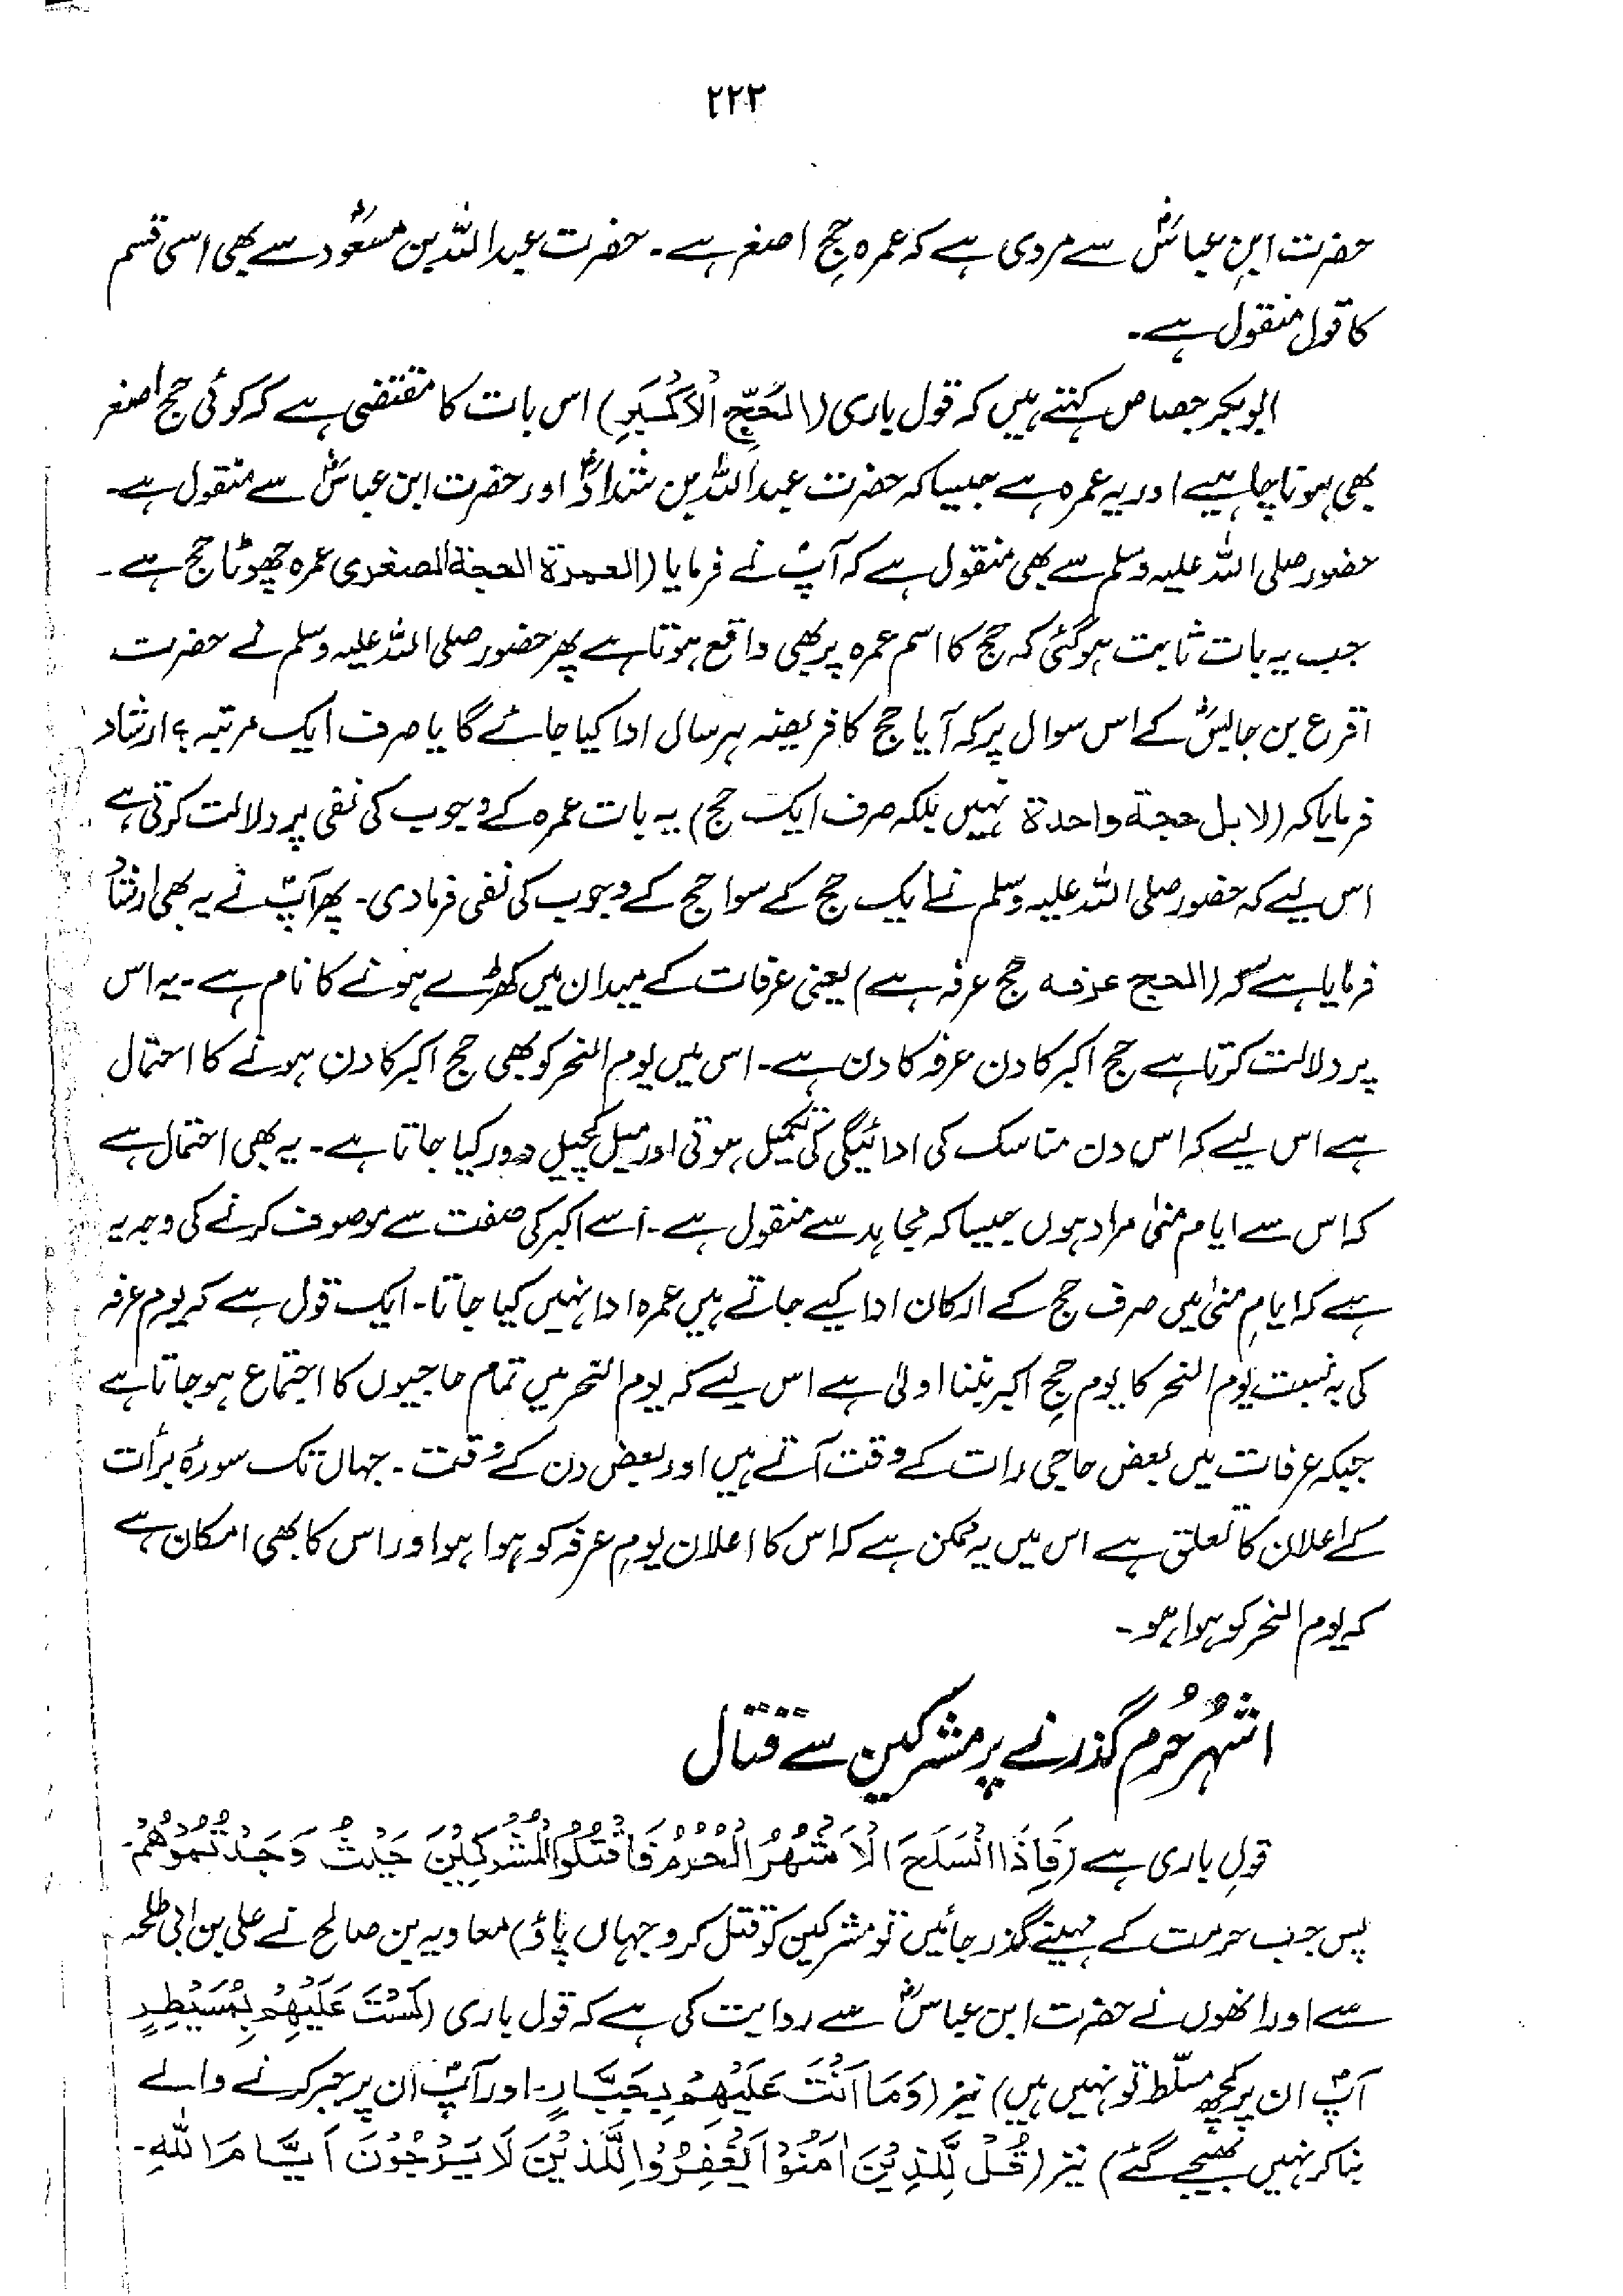 ۲۲۳
حضرت ابن عباسؓ سے مروی ہے کہ عمرہ حجِ اصغر ہے۔ حضرت عبداللہ بن مسعودؓ سے بھی اسی قسم
کا قول منقول ہے۔
ابوبکر جصاص کہتے ہیں کہ قول باری (الْحَجِّ الْاَكْبَرِ) اس بات کا مقتضی ہے کہ کوئی حج اصغر
بھی ہونا چاہیے اور یہ عمرہ ہے جیسا کہ حضرت عبداللہ بن شدادؓ اور حضرت ابن عباسؓ سے منقول ہے۔
حضور صلی اللہ علیہ وسلم سے بھی منقول ہے کہ آپؐ نے فرمایا (العمرة الحجة الصغرى عمرہ چھوٹا حج ہے۔
جب یہ بات ثابت ہوگئی کہ حج کا اسم عمرہ پر بھی واقع ہوتا ہے پھر حضور صلی اللہ علیہ وسلم نے حضرت
اقرع بن حابسؓ کے اس سوال پر کہ آیا حج کا فریضہ ہر سال ادا کیا جائے گا یا صرف ایک مرتبہ؟ ارشاد
فرمایا کہ (لا بل حجة واحدة نہیں بلکہ صرف ایک حج) یہ بات عمرہ کے وجوب کی نفی پر دلالت کرتی ہے
اس لیے کہ حضور صلی اللہ علیہ وسلم نے ایک حج کے سوا حج کے وجوب کی نفی فرمادی۔ پھر آپؐ نے یہ بھی ارشاد
فرمایا ہے کہ (الحج عرفه حج عرفہ ہے) یعنی عرفات کے میدان میں کھڑے ہونے کا نام ہے۔ یہ اس
پر دلالت کرتا ہے حج اکبر کا دن عرفہ کا دن ہے۔ اس میں یوم النحر کو بھی حج اکبر کا دن ہونے کا احتمال
ہے اس لیے کہ اس دن مناسک کی ادائیگی کی تکمیل ہوتی اور میل کچیل دور کیا جاتا ہے۔ یہ بھی احتمال ہے
کہ اس سے ایام منیٰ مراد ہوں جیسا کہ مجاہد سے منقول ہے۔ اسے اکبر کی صفت سے موصوف کرنے کی وجہ یہ
ہے کہ ایامِ منیٰ میں صرف حج کے ارکان ادا کیے جاتے ہیں عمرہ ادا نہیں کیا جاتا۔ ایک قول ہے کہ یوم عرفہ
کی بہ نسبت یوم النحر کا یوم حجِ اکبر بننا اولیٰ ہے اس لیے کہ یوم النحر میں تمام حاجیوں کا اجتماع ہوجاتا ہے
جبکہ عرفات میں بعض حاجی رات کے وقت آتے ہیں اور بعض دن کے وقت۔ جہاں تک سورۂ برأت
کے اعلان کا تعلق ہے اس میں یہ ممکن ہے کہ اس کا اعلان یومِ عرفہ کو ہوا ہو اور اس کا بھی امکان ہے
کہ یوم النحر کو ہوا ہو۔
اشہُرِ حُرم گذرنے پر مشرکین سے قتال
قولِ باری ہے (فَاِذَا انْسَلَخَ الْاَشْهُرُ الْحُرُمُ فَاقْتُلُوا الْمُشْرِكِيْنَ حَيْثُ وَجَدْتُمُوْهُمْ۔
پس جب حرمت کے مہینے گذر جائیں تو مشرکین کو قتل کرو جہاں پاؤ) معاویہ بن صالح نے علی بن ابی طلحہ
سے اور انھوں نے حضرت ابن عباسؓ سے روایت کی ہے کہ قول باری (لَسْتَ عَلَيْهِمْ بِمُسَيْطِرٍ
آپؐ ان پر کچھ مسلّط تو نہیں ہیں) نیز (وَمَا اَنْتَ عَلَيْهِمْ بِجَبَّارٍ۔ اور آپؐ ان پر جبر کرنے والے
بنا کر نہیں بھیجے گئے) نیز (قُلْ لِّلَّذِيْنَ اٰمَنُوْا يَغْفِرُوْا لِلَّذِيْنَ لَا يَرْجُوْنَ اَيَّامَ اللهِ۔